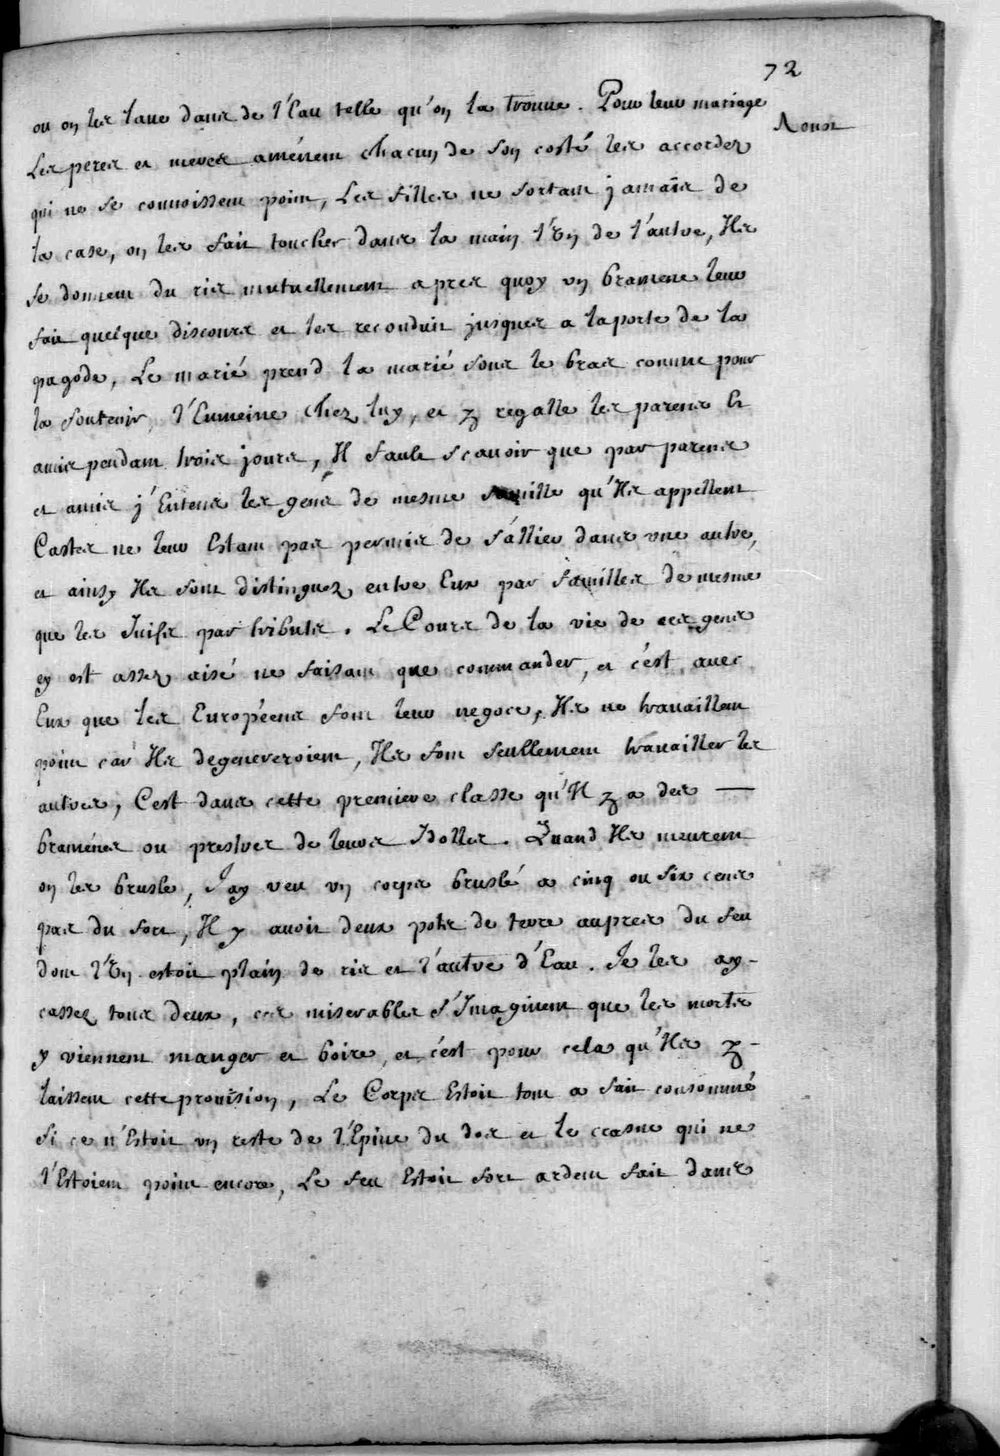 72
ou on les laue dans de l'Eau telle qu'on la trouue. Pour leur mariage
Les peres et meres aménent chacun de son costé les accordez
qui ne se connoissent point, Les filles ne sortant jamais de
la case, on les fait toucher dans la main l'Vn de l'autre, Ils
se donnent du ris mutuellement apres quoy vn bramene leur
fait quelque discours et les reconduit jusques a la porte de la
pagode, Le marié prend la marié sous le bras comme pour
la soutenir, l'Emmeine chez luy, et y regalle les parens Et
amis pendant trois jours, Il faut scauoir que par parens
et amis j'Entens les gens de mesme famille qu'Ils appellent
Castes ne leur Estant pas permis de s'allier dans vne autre,
et ainsy Ils sont distinguez entre Eux par familles de mesme
que les Juifs par tributs. Le Cours de la vie de ces gens
cy est assez aisé ne faisant que commander, et c'est auec
Eux que les Européens font leur negoce, Ils ne trauaillent
point car Ils degenereroient, Ils font seullement trauailler les
autres, C'est dans cette premiere classe qu'Il y a des —
braménes ou prestres de leurs Idolles. Quand Ils meurent
on les brusle, J'ay veu vn corps bruslé a cinq ou six cens
pas du fort, Il y auoit deux pots de terre aupres du feu
dont l'Vn estoit plain de ris et l'autre d'Eau. Je les ay-
cassez tous deux, ces miserables s'Imaginent que les morts
y viennent manger et boire, et c'est pour cela qu'Ils y-
laissent cette prouision, Le Corps Estoit tout a fait consommé
si ce n'Estoit vn reste de l'Epine du dos et le crasne qui ne
l'Estoient point encore, Le feu Estoit fort ardent fait dans